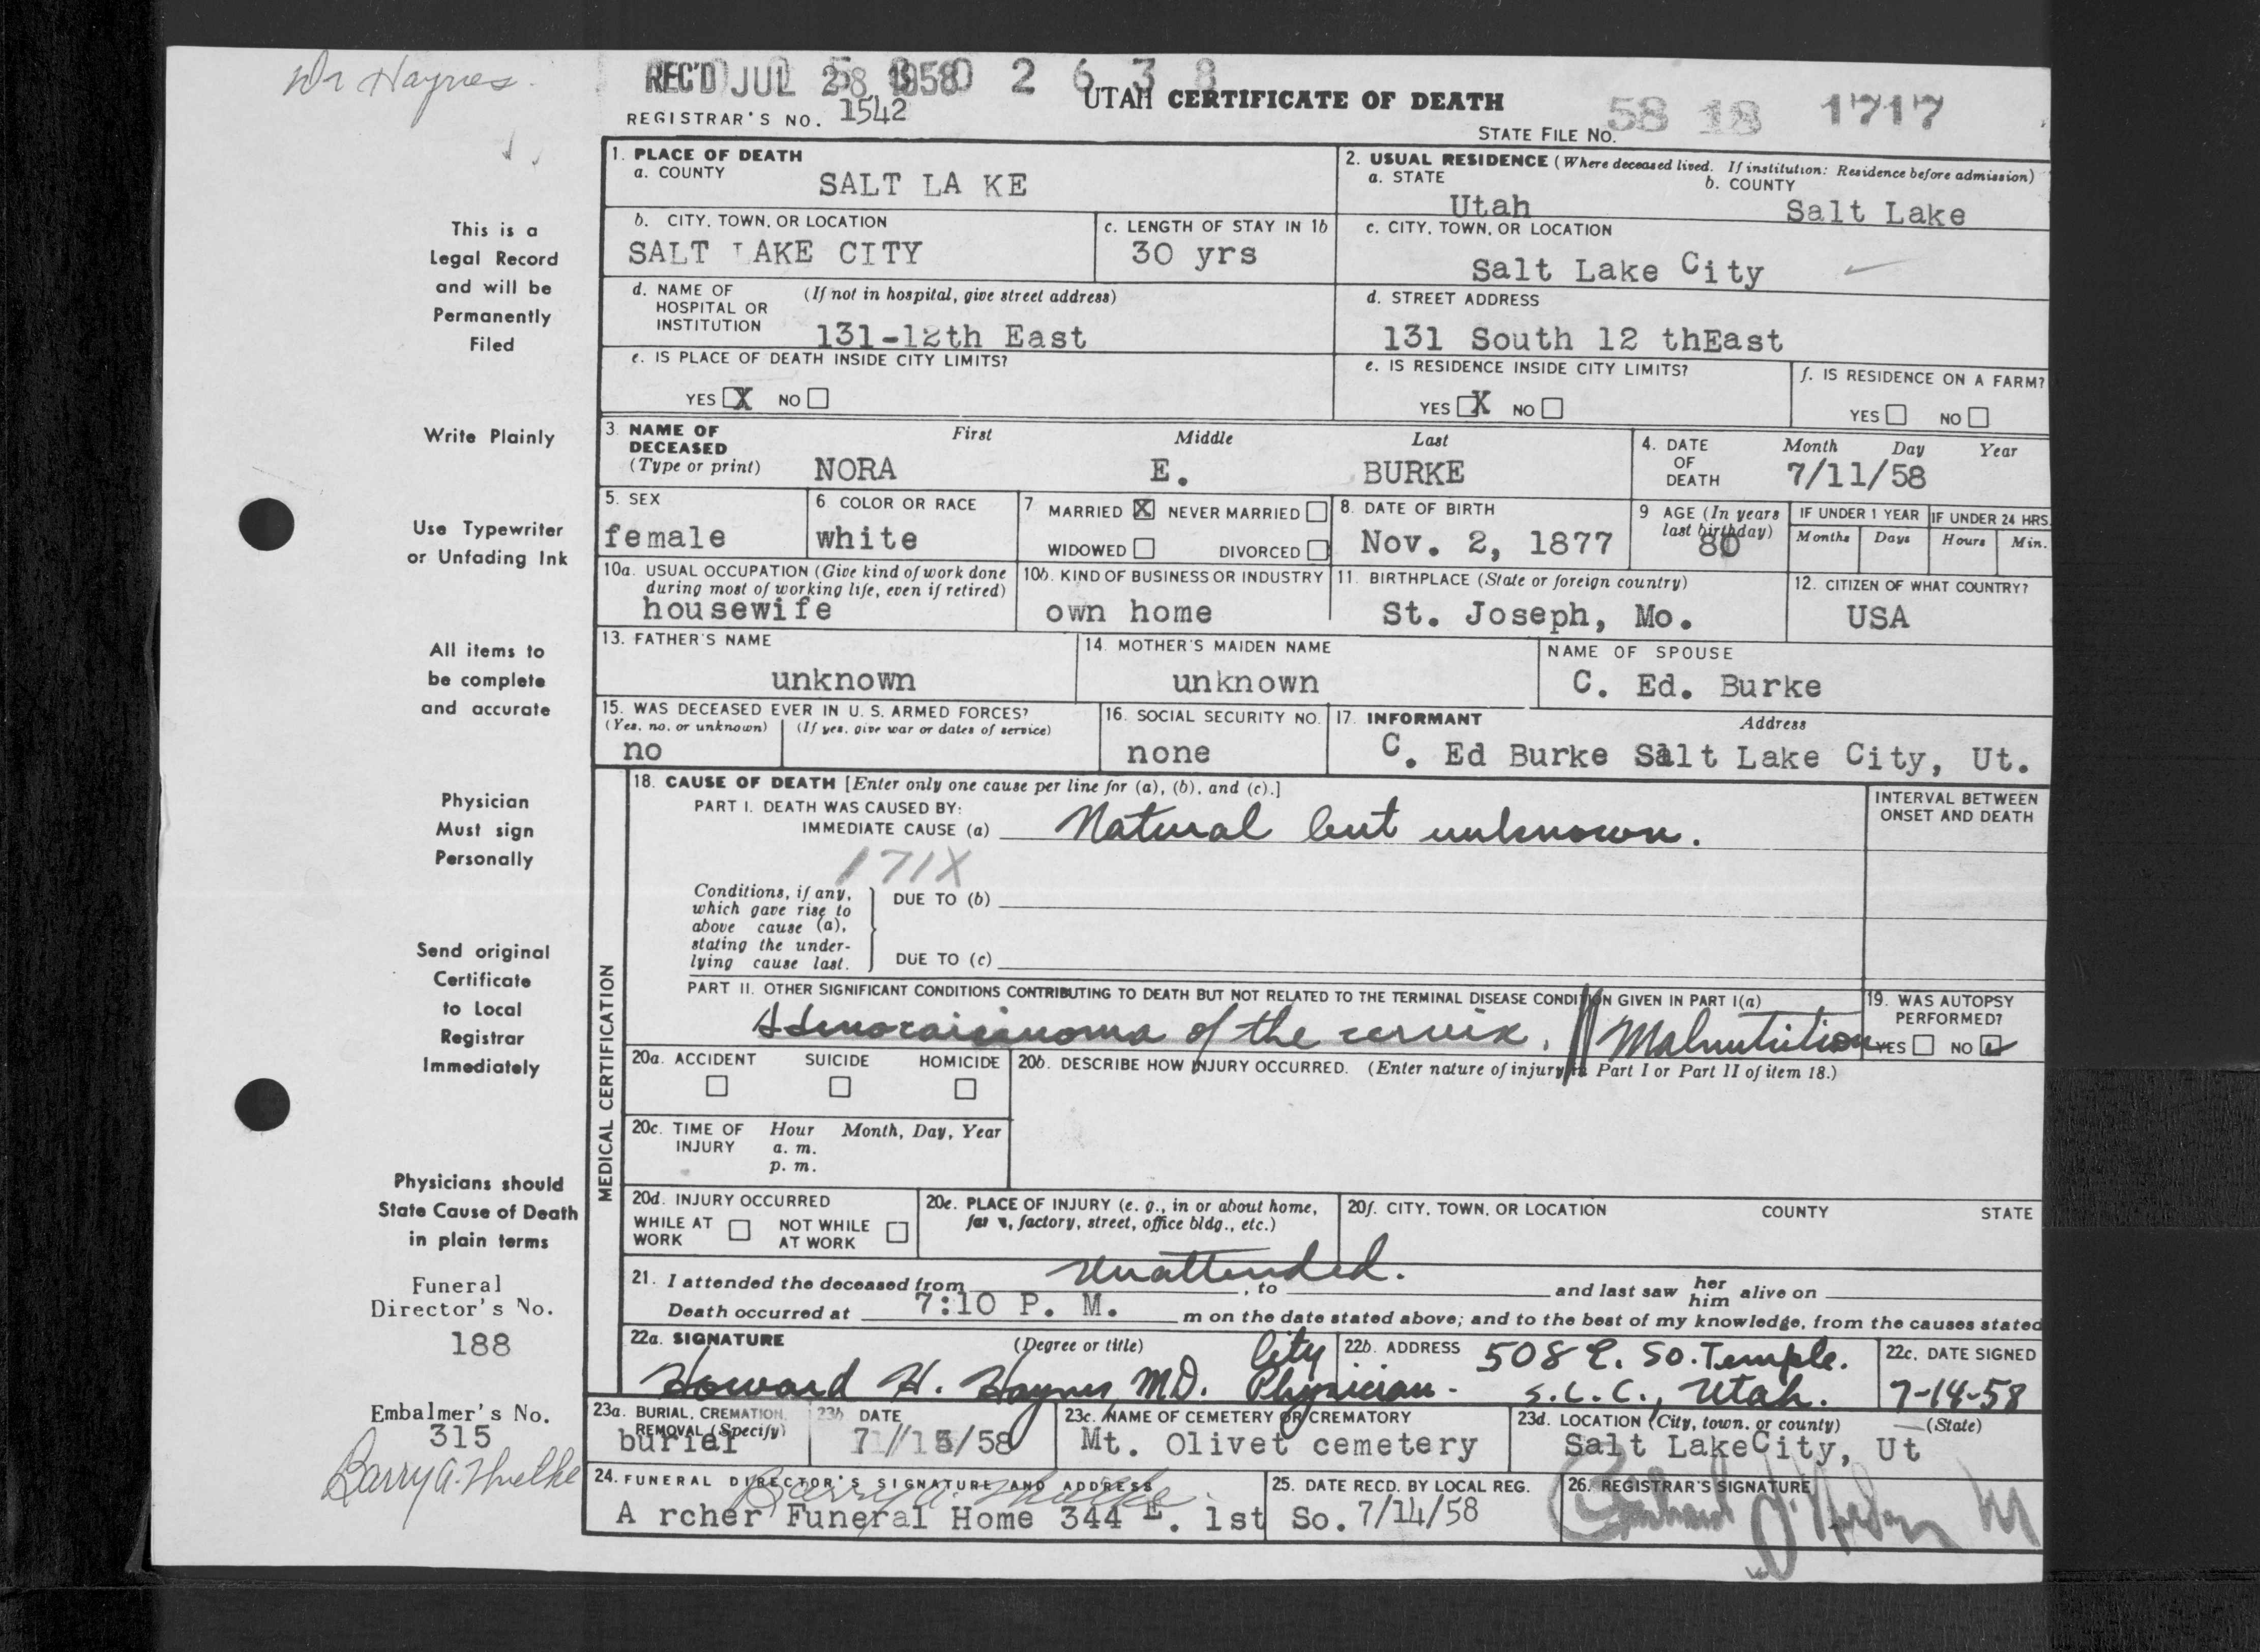 Dr Haynes.
REC'D JUL 28 1958
2638
UTAH CERTIFICATE OF DEATH
REGISTRAR'S NO. 1542
STATE FILE NO. 58 18 1717
This is a
Legal Record
and will be
Permanently
Filed
Write Plainly
Use Typewriter
or Unfading Ink
All items to
be complete
and accurate
Physician
Must sign
Personally
Send original
Certificate
to Local
Registrar
Immediately
Physicians should
State Cause of Death
in plain terms
Funeral
Director's No.
188
Embalmer's No.
315
1. PLACE OF DEATH
a. COUNTY SALT LA KE
2. USUAL RESIDENCE (Where deceased lived. If institution: Residence before admission)
a. STATE Utah b. COUNTY Salt Lake
b. CITY, TOWN, OR LOCATION SALT LAKE CITY
c. LENGTH OF STAY IN 1b 30 yrs
c. CITY, TOWN, OR LOCATION Salt Lake City
d. NAME OF HOSPITAL OR INSTITUTION (If not in hospital, give street address) 131-12th East
d. STREET ADDRESS 131 South 12 thEast
e. IS PLACE OF DEATH INSIDE CITY LIMITS?
YES X NO
e. IS RESIDENCE INSIDE CITY LIMITS?
YES X NO
f. IS RESIDENCE ON A FARM?
YES NO
3. NAME OF DECEASED (Type or print) First Middle Last
NORA E. BURKE
4. DATE OF DEATH Month Day Year
7/11/58
5. SEX female
6. COLOR OR RACE white
7 MARRIED X NEVER MARRIED
WIDOWED DIVORCED
8. DATE OF BIRTH Nov. 2, 1877
9 AGE (In years last birthday) 80
IF UNDER 1 YEAR Months Days
IF UNDER 24 HRS. Hours Min.
10a. USUAL OCCUPATION (Give kind of work done during most of working life, even if retired)
housewife
10b. KIND OF BUSINESS OR INDUSTRY own home
11. BIRTHPLACE (State or foreign country) St. Joseph, Mo.
12. CITIZEN OF WHAT COUNTRY? USA
13. FATHER'S NAME unknown
14. MOTHER'S MAIDEN NAME unknown
NAME OF SPOUSE C. Ed. Burke
15. WAS DECEASED EVER IN U. S. ARMED FORCES?
(Yes, no, or unknown) (If yes, give war or dates of service)
no
16. SOCIAL SECURITY NO. none
17. INFORMANT Address
C. Ed Burke Salt Lake City, Ut.
MEDICAL CERTIFICATION
18. CAUSE OF DEATH [Enter only one cause per line for (a), (b), and (c).]
PART I. DEATH WAS CAUSED BY:
IMMEDIATE CAUSE (a) Natural but unknown.
INTERVAL BETWEEN ONSET AND DEATH
171X
Conditions, if any, which gave rise to above cause (a), stating the underlying cause last.
DUE TO (b)
DUE TO (c)
PART II. OTHER SIGNIFICANT CONDITIONS CONTRIBUTING TO DEATH BUT NOT RELATED TO THE TERMINAL DISEASE CONDITION GIVEN IN PART I(a)
Adenocarcinoma of the cervix. Malnutrition
19. WAS AUTOPSY PERFORMED?
YES NO
20a. ACCIDENT SUICIDE HOMICIDE
20b. DESCRIBE HOW INJURY OCCURRED. (Enter nature of injury in Part I or Part II of item 18.)
20c. TIME OF INJURY Hour Month, Day, Year
a. m.
p. m.
20d. INJURY OCCURRED
WHILE AT WORK NOT WHILE AT WORK
20e. PLACE OF INJURY (e. g., in or about home, farm, factory, street, office bldg., etc.)
20f. CITY, TOWN, OR LOCATION COUNTY STATE
21. I attended the deceased from Unattended. , to and last saw her him alive on
Death occurred at 7:10 P. M. m on the date stated above; and to the best of my knowledge, from the causes stated
22a. SIGNATURE (Degree or title)
Howard H. Haynes M.D. City Physician.
22b. ADDRESS 508 E. So. Temple.
S.L.C., Utah.
22c. DATE SIGNED
7-14-58
23a. BURIAL, CREMATION, REMOVAL (Specify) burial
23b DATE 7/15/58
23c. NAME OF CEMETERY OR CREMATORY Mt. Olivet cemetery
23d. LOCATION (City, town, or county) (State)
Salt LakeCity, Ut
24. FUNERAL DIRECTOR'S SIGNATURE AND ADDRESS
A rcher Funeral Home 344 E. 1st So.
25. DATE RECD. BY LOCAL REG. 7/14/58
26. REGISTRAR'S SIGNATURE